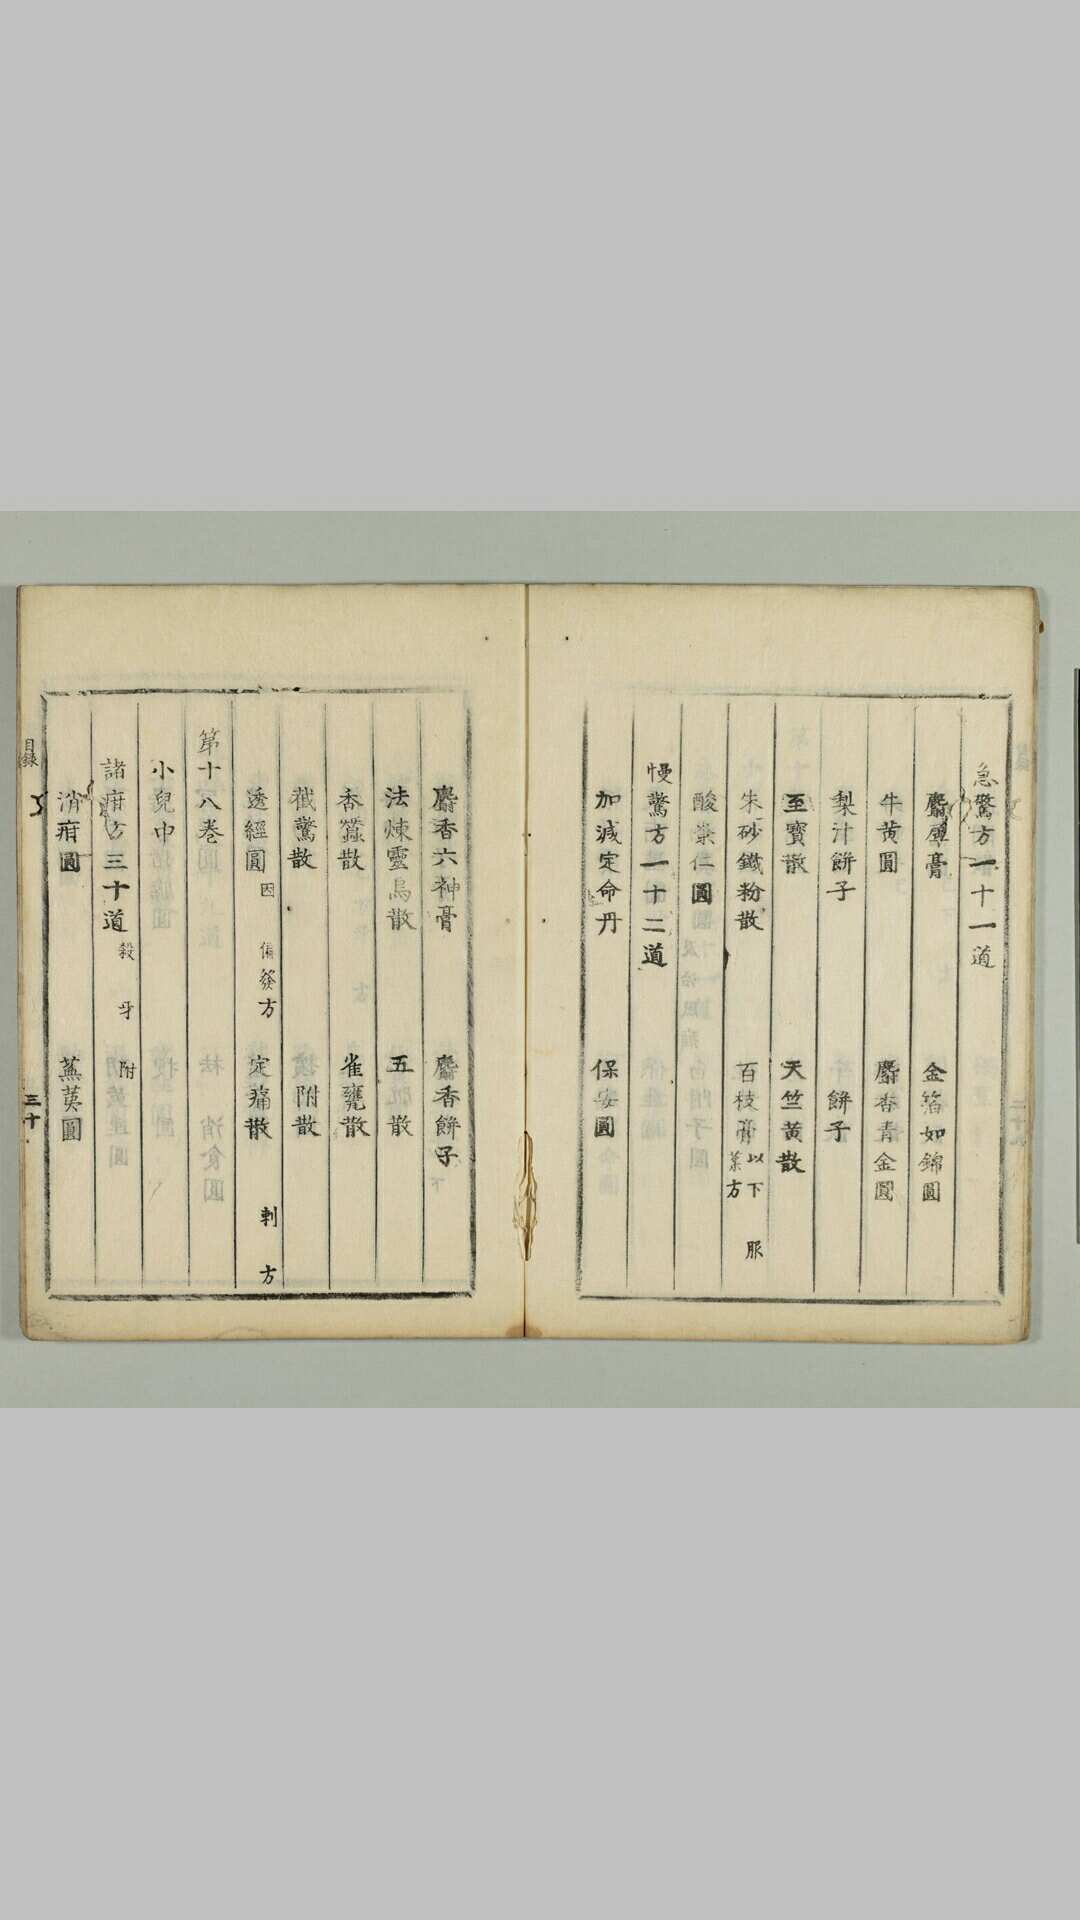 急驚方一十一道
麝犀膏 金箔如錦圓
牛黄圓 麝香青金圓
梨汁餅子 餅子
至寶散 天竺黄散
朱砂鐵粉散 百枝膏 以下 服 藥方
酸棗仁圓
慢驚方一十二道
加減定命丹 保安圓
麝香六神膏 麝香餅子
法煉靈烏散 五 散
香蠶散 雀甕散
截驚散 附散
透經圓 因 偏發方 定痛散 刺 方
第十八卷
小兒中
諸疳方三十道 殺 牙 附
消疳圓 蕪荑圓
目録
三十